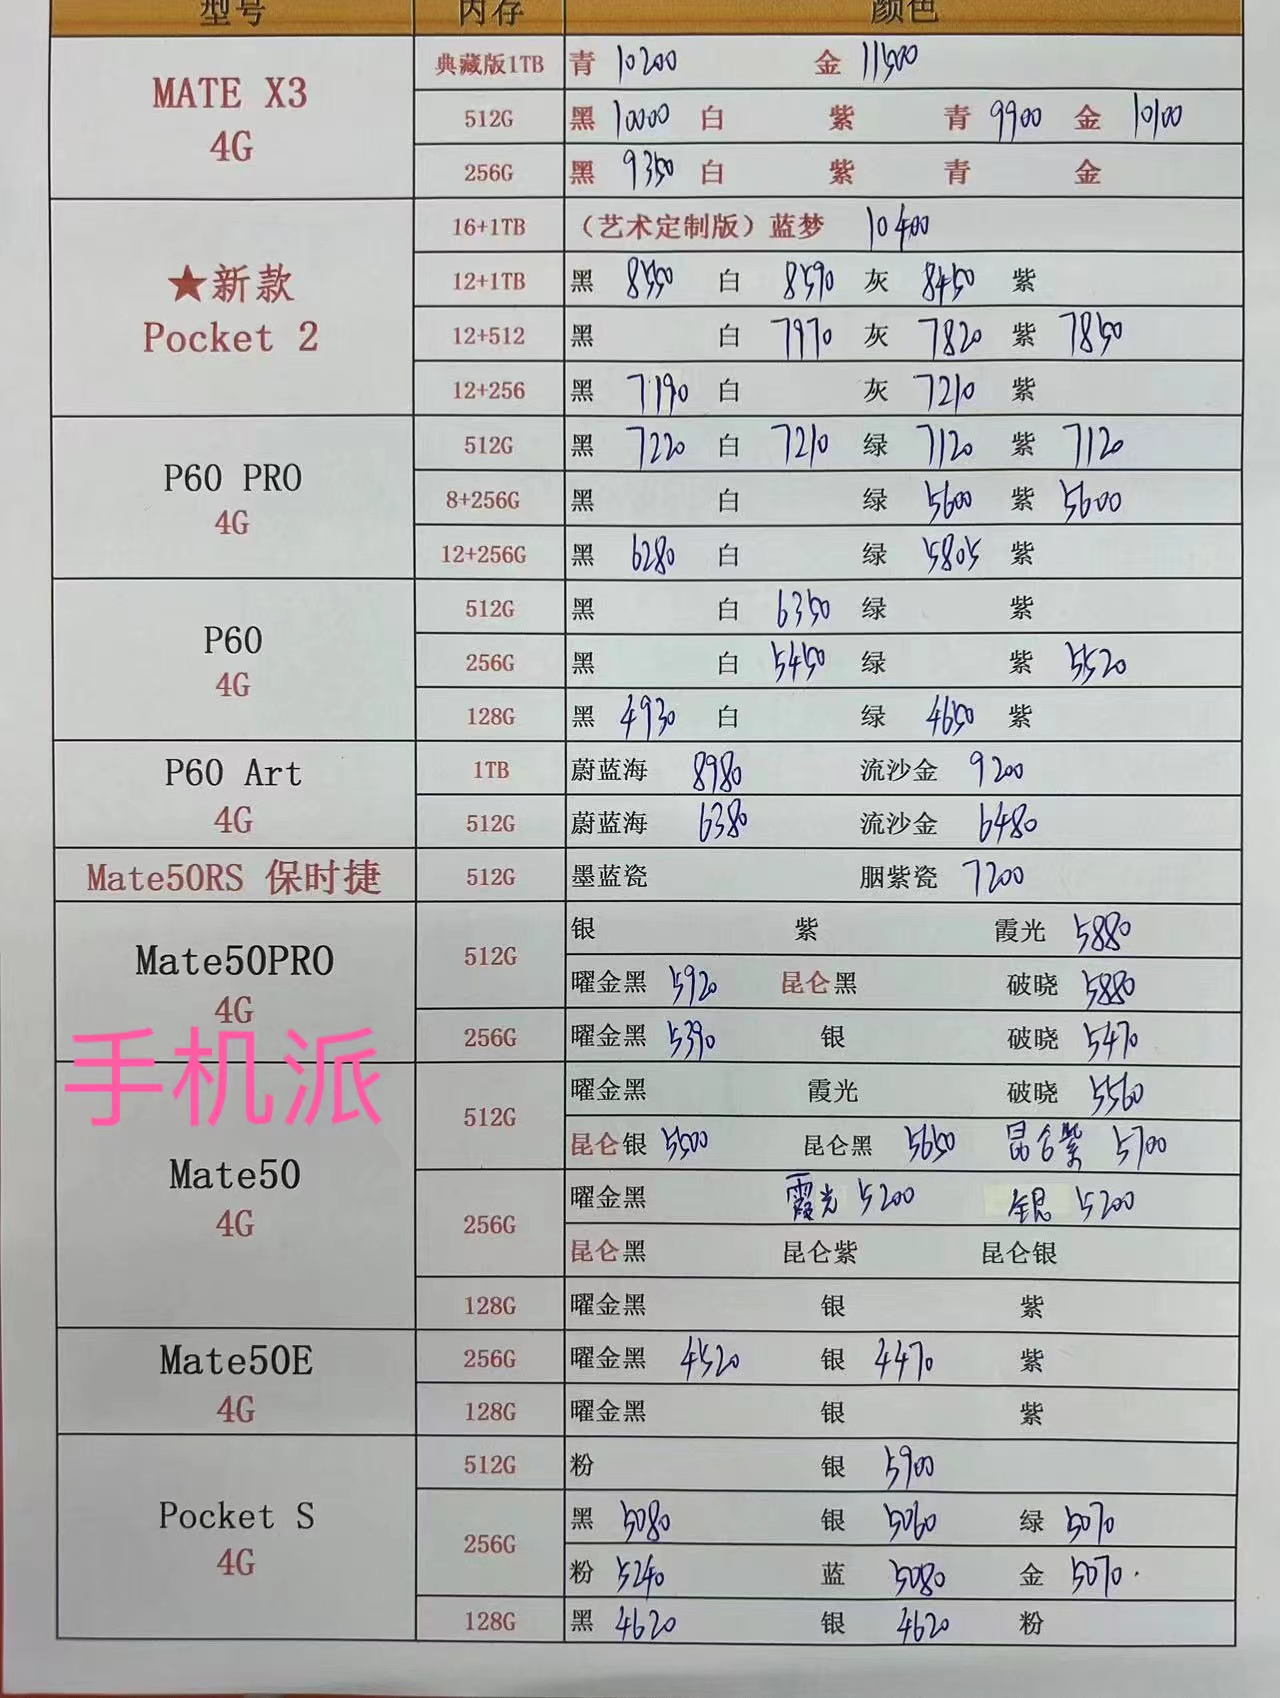 型号 内存 颜色
MATE X3
4G
典藏版1TB 青 10200 金 11500
512G 黑 10000 白 紫 青 9900 金 10100
256G 黑 9350 白 紫 青 金
★新款
Pocket 2
16+1TB （艺术定制版）蓝梦 10400
12+1TB 黑 8550 白 8590 灰 8450 紫
12+512 黑 白 7970 灰 7820 紫 7850
12+256 黑 7190 白 灰 7210 紫
P60 PRO
4G
512G 黑 7220 白 7210 绿 7120 紫 7120
8+256G 黑 白 绿 5600 紫 5600
12+256G 黑 6280 白 绿 5805 紫
P60
4G
512G 黑 白 6350 绿 紫
256G 黑 白 5450 绿 紫 5520
128G 黑 4930 白 绿 4650 紫
P60 Art
4G
1TB 蔚蓝海 8980 流沙金 9200
512G 蔚蓝海 6380 流沙金 6480
Mate50RS 保时捷 512G 墨蓝瓷 胭紫瓷 7200
Mate50PRO
4G
512G 银 紫 霞光 5880
曜金黑 5920 昆仑黑 破晓 5880
256G 曜金黑 5390 银 破晓 5470
手机派
Mate50
4G
512G 曜金黑 霞光 破晓 5560
昆仑银 5500 昆仑黑 5650 昆仑紫 5700
256G 曜金黑 霞光 5200 银 5200
昆仑黑 昆仑紫 昆仑银
128G 曜金黑 银 紫
Mate50E
4G
256G 曜金黑 4520 银 4470 紫
128G 曜金黑 银 紫
Pocket S
4G
512G 粉 银 5900
256G 黑 5080 银 5060 绿 5070
粉 5240 蓝 5080 金 5070.
128G 黑 4620 银 4620 粉